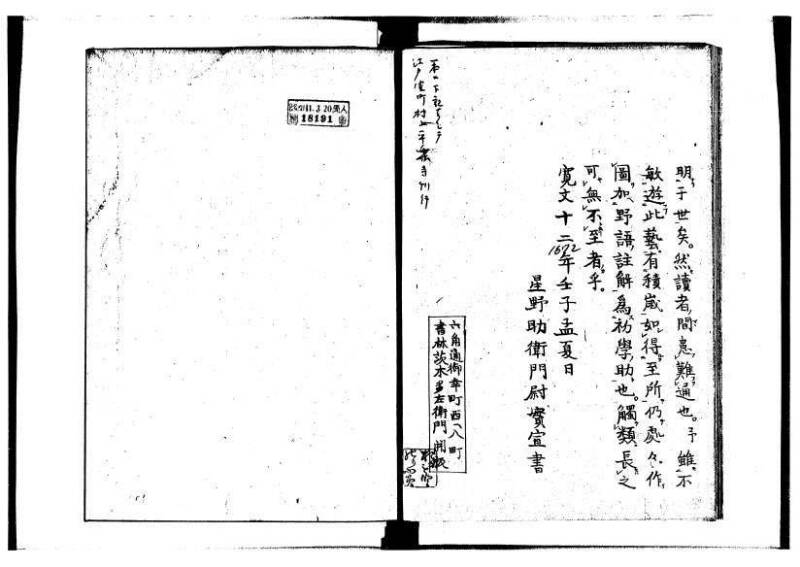 明于世矣。然讀者間患難通也。予雖不
敏遊此藝有積歲如得至所仍處々作
圖加野語註解為初學助也。觸類長之
可無不至者乎。
寛文十二年壬子孟夏日
1672
星野助衛門尉實宣書
六角通御幸町西へ入町
書林茨木多左衛門開板
18191